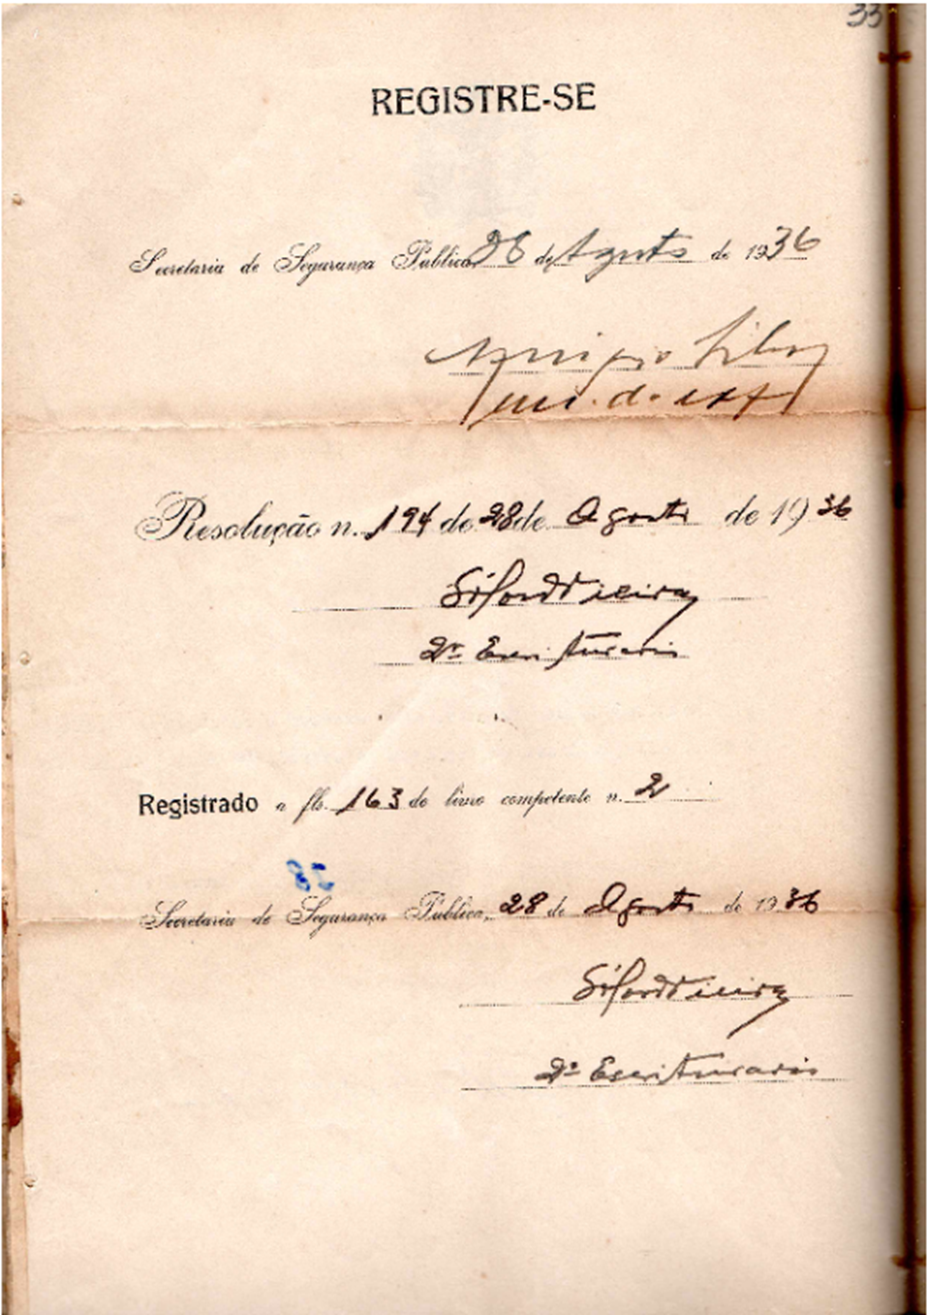 33
REGISTRE-SE
Secretaria de Segurança Publica, 28 de Agosto de 1936
Resolução n. 194 de 28 de Agosto de 1936
2º Escriturario
Registrado a fls. 163 do livro competente n. 2
28
Secretaria de Segurança Publica, 28 de Agosto de 1936
2º Escriturario